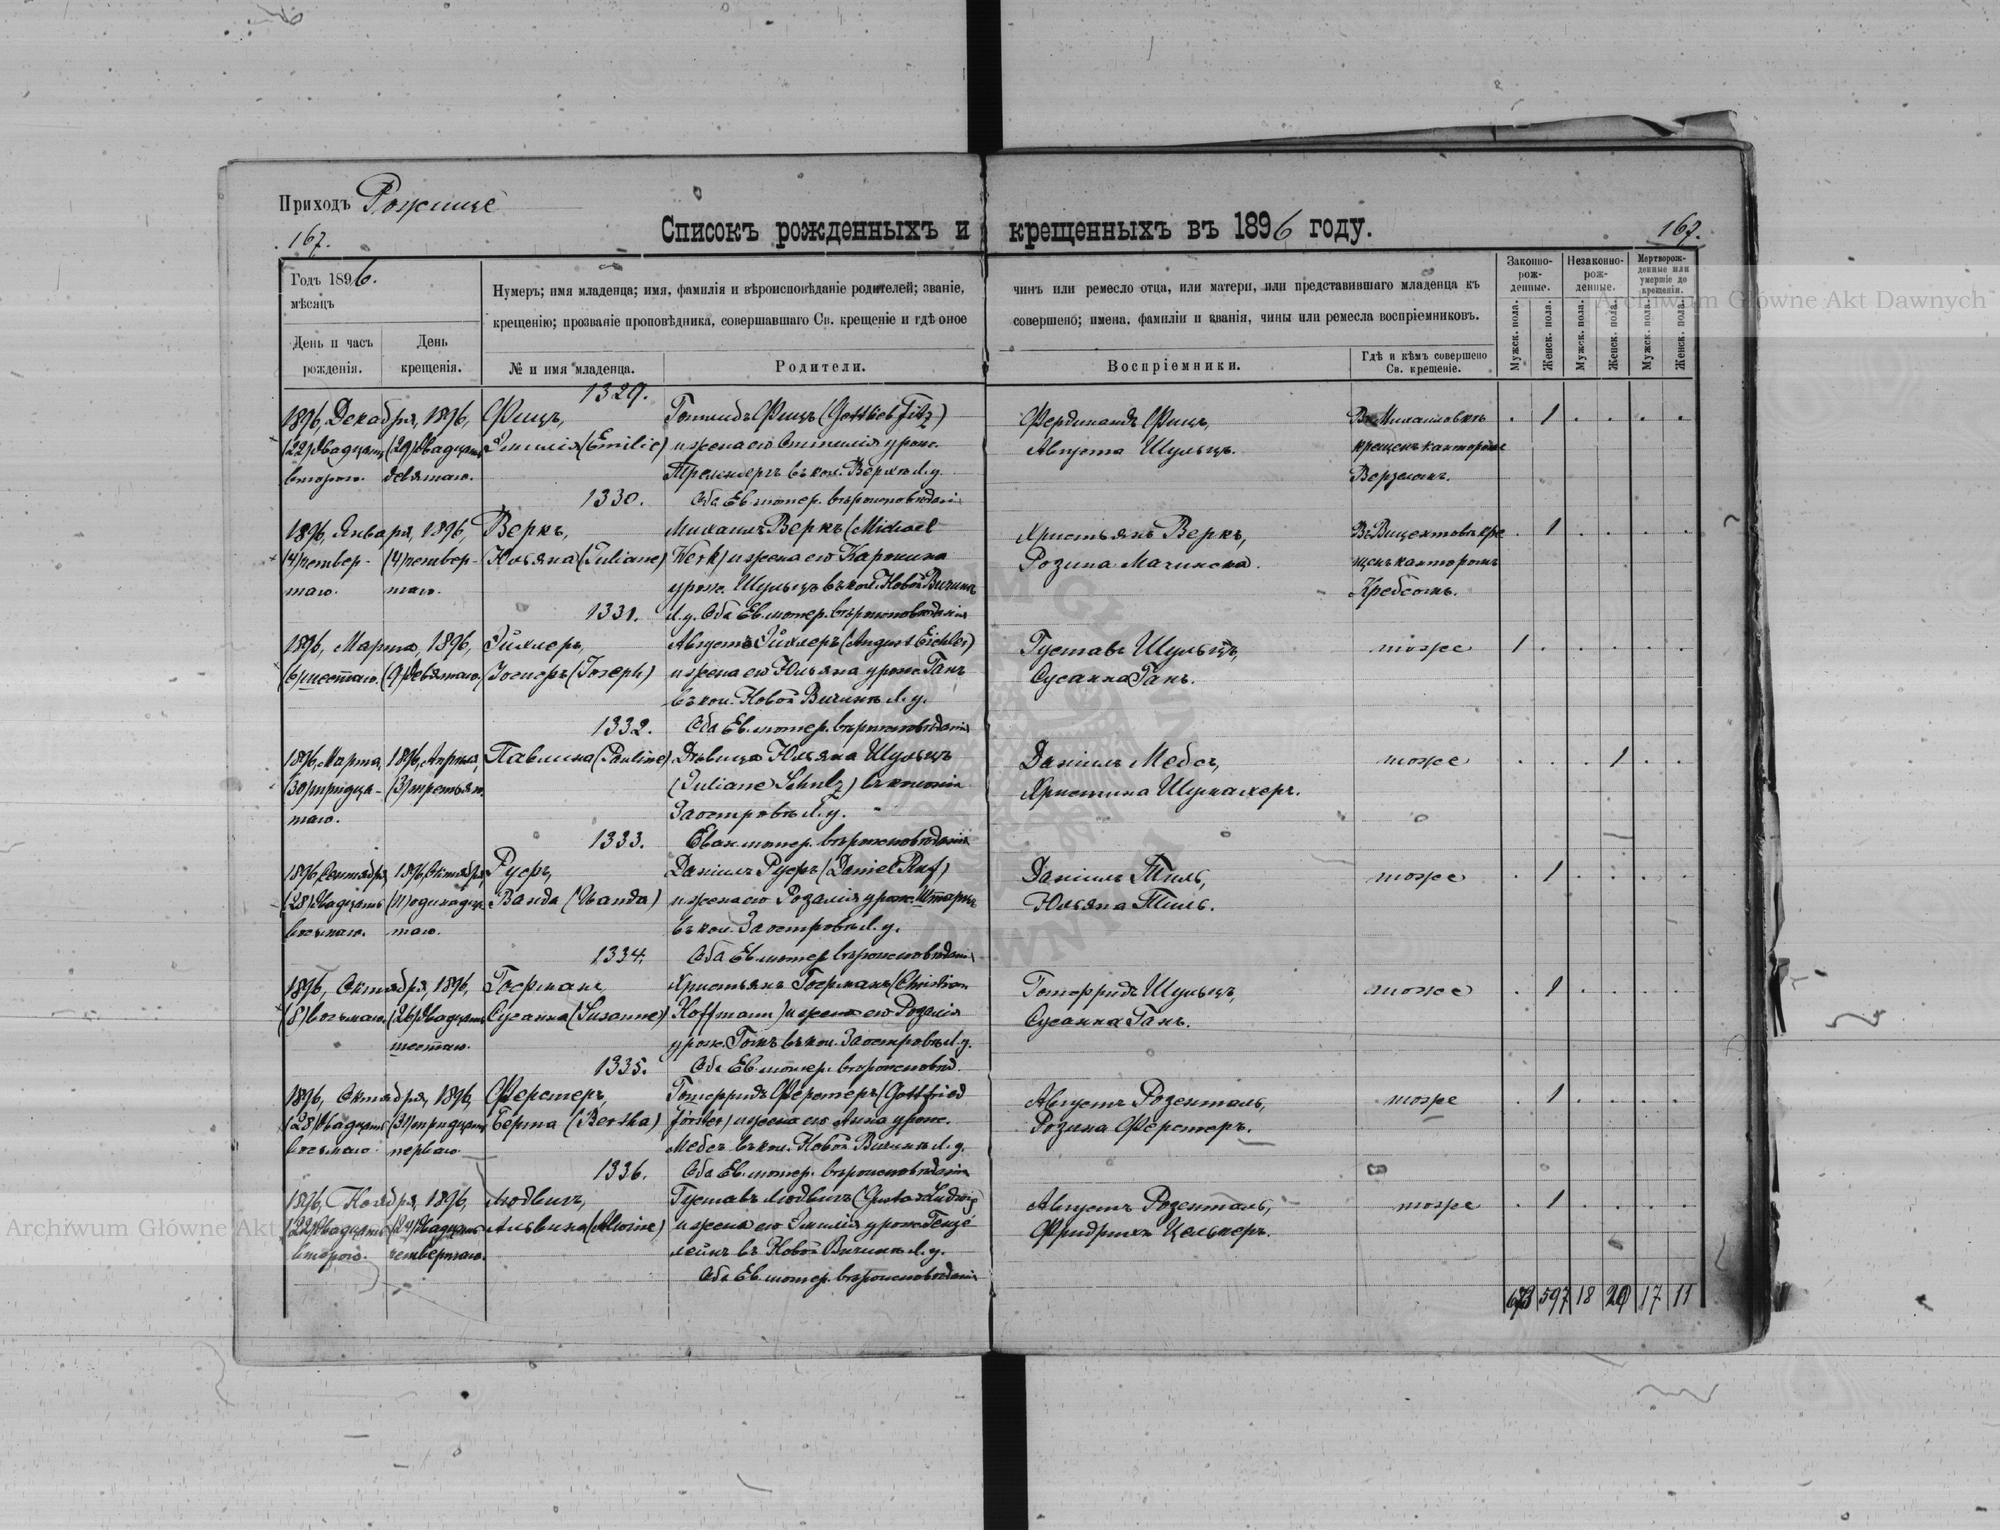 Приходъ Рожище
167.
Списокъ рожденныхъ и крещенныхъ въ 1896 году.
167.
Годъ 1896.
мѣсяцъ
День и часъ рожденія.
День крещенія.
Нумеръ; имя младенца; имя, фамилія и вѣроисповѣданіе родителей; званіе, чинъ или ремесло отца, или матери, или представившаго младенца къ
крещенію; прозваніе проповѣдника, совершавшаго Св. крещеніе и гдѣ оное совершено; имена, фамиліи и званія, чины или ремесла воспріемниковъ.
№ и имя младенца.
Родители.
Воспріемники.
Гдѣ и кѣмъ совершено Св. крещеніе.
Законно-рож-денные.
Незаконно-рож-денные.
Мертворож-денные или умершіе до крещенія.
Мужск. пола.
Женск. пола.
Мужск. пола.
Женск. пола.
Мужск. пола.
Женск. пола.
1329.
1896, Декабря, 1896, Фицъ, Готлибъ Фицъ (Gottlieb Fitz) Фердинандъ Фицъ, 1
(22) двадцать (29) двадцать Эмилія (Emilie) и жена его Оттилія урож. Августа Шульцъ. крещенъ канторомъ
второго. девятаго. въ кол. Л. у.
1330. Оба Ев. лютер. вѣроисповѣданія
1896, Января, 1896, Веркъ, Михаилъ Веркъ (Michael Христьянъ Веркъ, 1
(4) четвер- (4) четвер- Юльяна (Juliane) Werk) и жена его Каролина Розина канторомъ
таго. таго. урож. Шульцъ въ кол. Новой Кребсомъ.
1331. Л. у. Оба Ев. лютер. вѣроисповѣданія
1896, Марта, 1896, Эйхлеръ, Августъ Эйхлеръ (August Eichler) Густавъ Шульцъ, тоже 1
(6) шестаго. (9) девятаго. Іосифъ (Joseph) и жена его Юльяна урож. Ганъ Сусанна Ганъ.
въ кол. Новой Л. у.
1332. Оба Ев. лютер. вѣроисповѣданія
1896, Марта, 1896, Апрѣля, Павлина (Pauline) Дѣвица Юльяна Шульцъ Даніилъ Мебсъ, тоже 1
(30) тридца- (3) третьяго. (Juliane Schulz) въ колоніи Христина Шумахеръ.
таго. Л. у.
1333. Еван. лютер. вѣроисповѣданія
1896, Сентября, 1896, Октября, Руфъ, Даніилъ Руфъ (Daniel Ruf) Даніилъ Тиль, тоже 1
(28) двадцать (11) одинадца- Ванда (Wanda) и жена его Розалія урож. Юльяна Тиль.
восьмаго. таго. въ кол. Л. у.
1334. Оба Ев. лютер. вѣроисповѣданія
1896, Октября, 1896, Гофманъ, Христьянъ Гофманъ (Christian Готфридъ Шульцъ, тоже 1
(8) восьмаго. (26) двадцать Сусанна (Susanne) Hoffmann) и жена его Розалія Сусанна Ганъ.
шестаго. урож. въ кол. Л. у.
1335. Оба Ев. лютер. вѣроисповѣд.
1896, Октября, 1896, Ферстеръ, Готфридъ Ферстеръ (Gottfried Августъ Розенталь, тоже 1
(28) двадцать (31) тридцать Берта (Bertha) Förster) и жена его Анна урож. Розина Ферстеръ.
восьмаго. перваго. Мебсъ въ кол. Новой Л. у.
1336. Оба Ев. лютер. вѣроисповѣданія
1896, Ноября, 1896, Людвигъ, Густавъ Людвигъ (Gustav Ludwig) Августъ Розенталь, тоже 1
(22) двадцать (24) двадцать Альвина (Alwine) и жена его Эмилія урож. Фридрихъ
второго. четвертаго. въ Новой Л. у.
Оба Ев. лютер. вѣроисповѣданія
597 18 17 11
Archiwum Główne Akt Dawnych
Archiwum Główne Akt